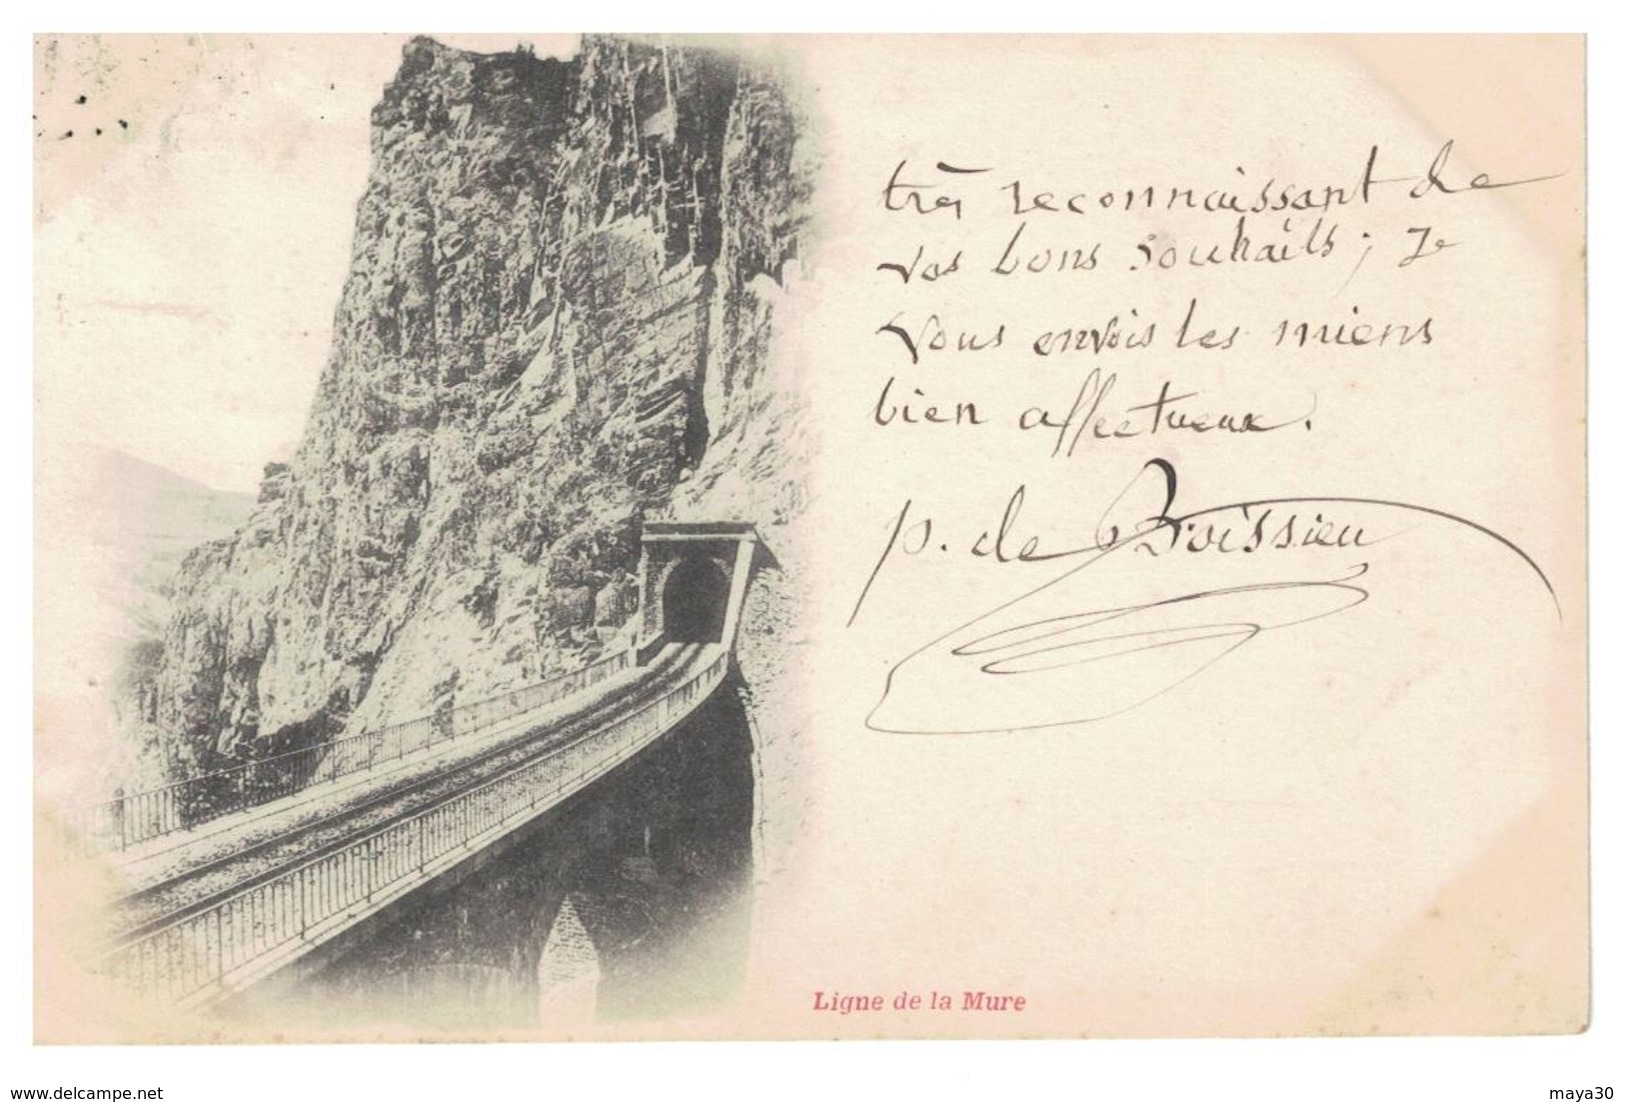 très reconnaissant de
vos bons souhaits; Je
vous envois les miens
bien affectueux.
p. de Boissieu
Ligne de la Mure
www.delcampe.net
maya30